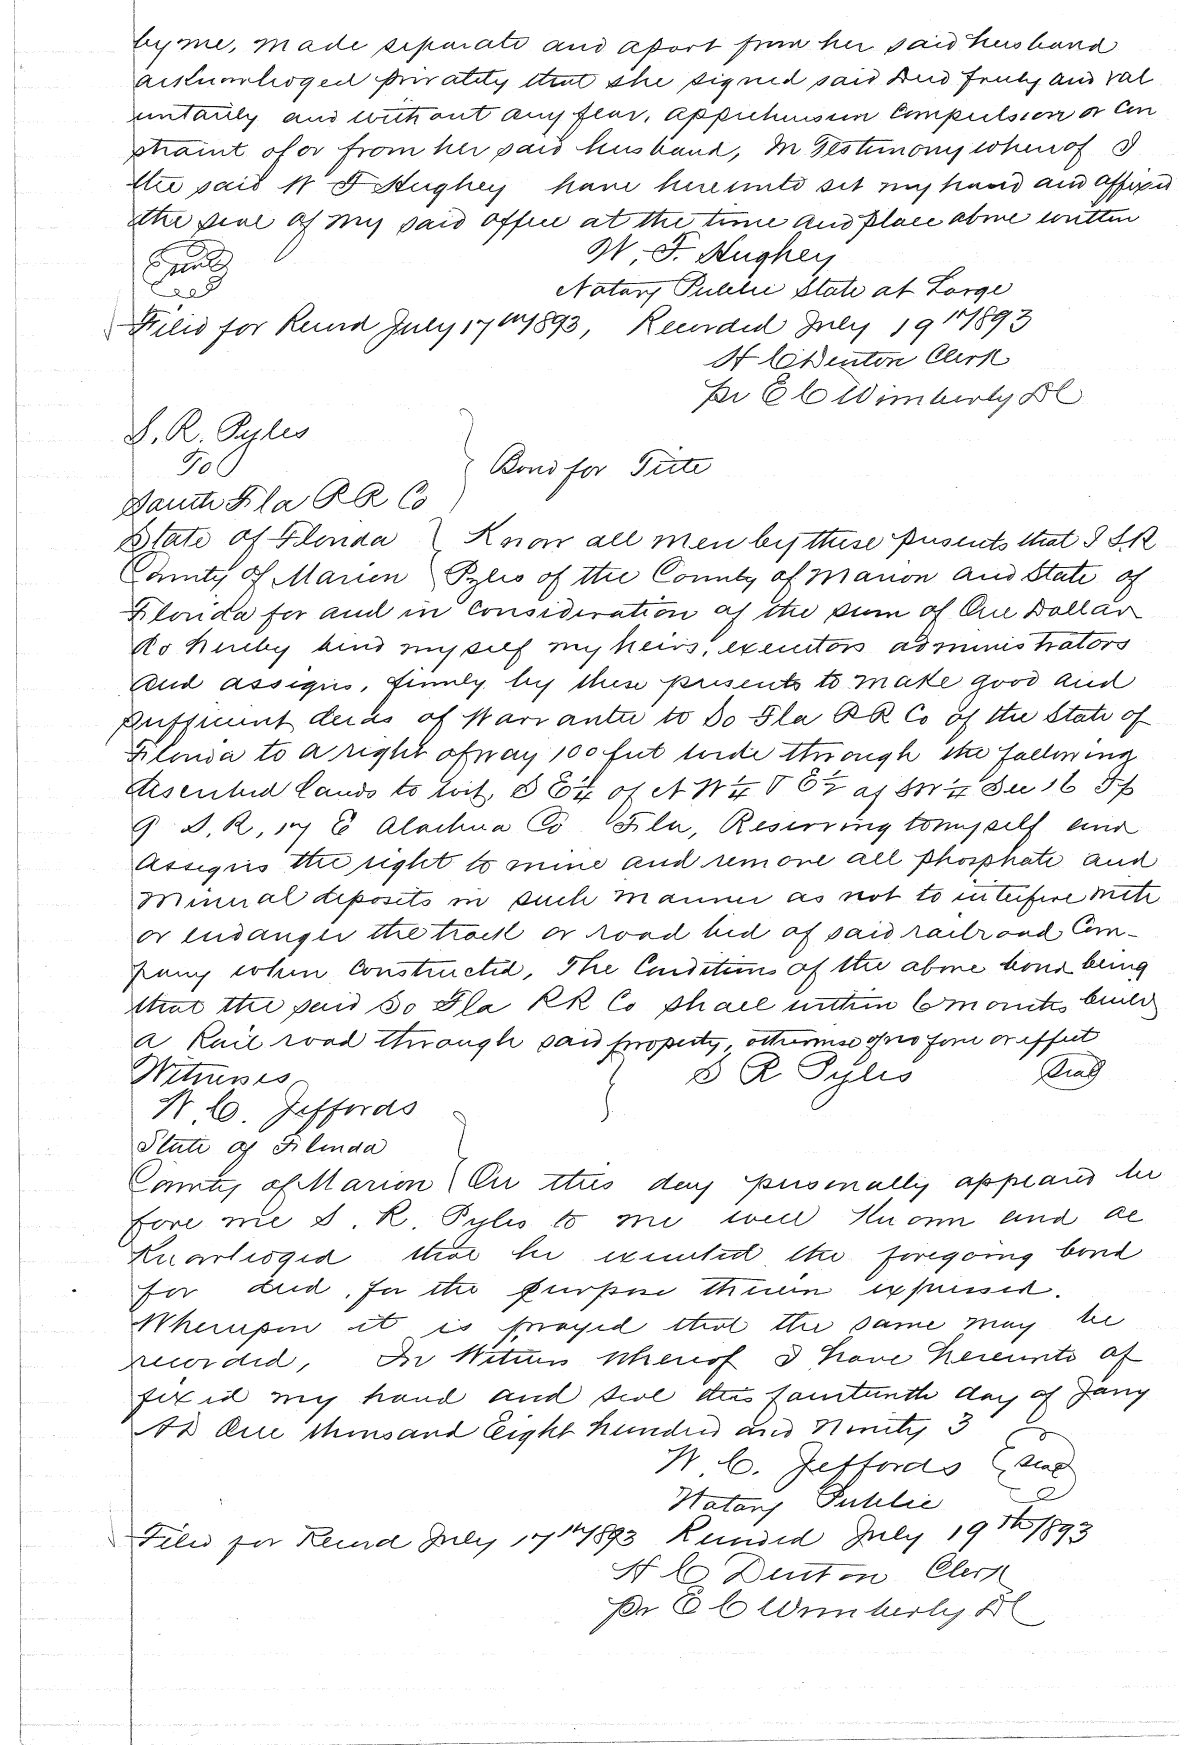 by me, made separate and apart from her said husband
acknowledged privately that she signed said Deed freely and vol
untarily and without any fear, apprehension Compulsion or Con
straint of or from her said husband, In Testimony whereof I
the said W F Hughey have hereunto set my hand and affixed
the seal of my said office at the time and place above written
W. F. Hughey
Notary Public State at Large
Filed for Record July 17th/893, Recorded July 19th/893
H C Denton Clerk
pr E C Wimberly DC
S. R. Pyles
To
South Fla R R Co
Bond for Title
State of Florida Know all men by these presents that I S R
County of Marion Pyles of the County of Marion and State of
Florida for and in consideration of the sum of One Dollar
do hereby bind myself my heirs, executors administrators
and assigns, firmly by these presents to make good and
sufficient deeds of Warrantee to So Fla R R Co of the State of
Florida to a right of way 100 feet wide through the following
described lands to wit, S E 1/4 of N W 1/4 & E 1/2 of SW 1/4 Sec 16 Tp
9 S, R, 17 E Alachua Co Fla, Reserving to myself and
assigns the right to mine and remove all phosphate and
mineral deposits in such manner as not to interfere with
or endanger the track or road bed of said railroad Com-
pany when constructed, The Conditions of the above bond being
that the said So Fla RR Co shall within 6 months build
a Rail road through said property, otherwise of no force or effect
Witnesses S R Pyles Seal
W. C. Jeffords
State of Florida
County of Marion On this day personally appeared be
fore me S. R. Pyles to me well known and ac
knowledged that he executed the foregoing bond
for deed, for the purpose therein expressed.
Whereupon it is prayed that the same may be
recorded, In Witness whereof I have hereunto af
fixed my hand and seal this fourteenth day of Jany
AD One thousand Eight hundred and Ninety 3
W. C. Jeffords Seal
Notary Public
Filed for Record July 17th/893 Recorded July 19th/893
H C Denton Clerk
pr E C Wimberly DC